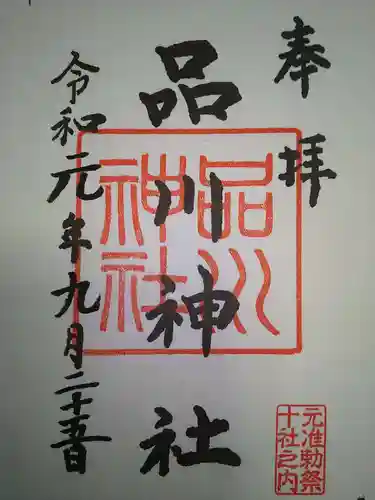 奉拝
品川神社
品川神社
元准勅祭
十社之内
令和元年九月二十五日